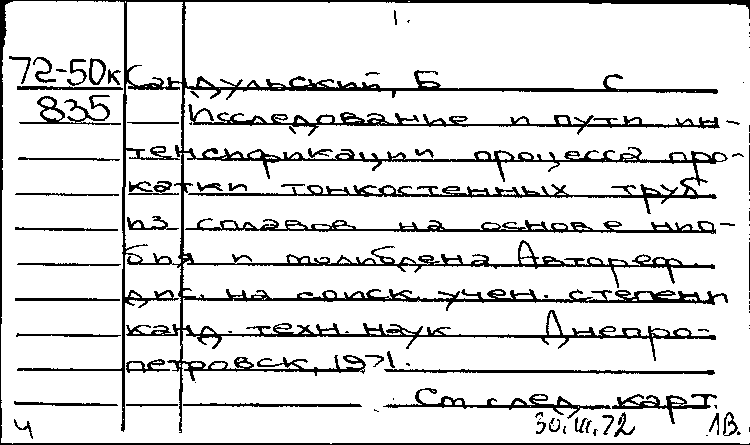 1.
72-50к Сандульский, Б С
835 Исследование и пути ин-
тенсификации процесса про-
катки тонкостенных труб
из сплавов на основе нио-
бия и молибдена. Автореф.
дис. на соиск. учен. степени
канд. техн. наук Днепро-
петровск, 1971.
См след. карт.
ч 30.III.72 ЛВ.